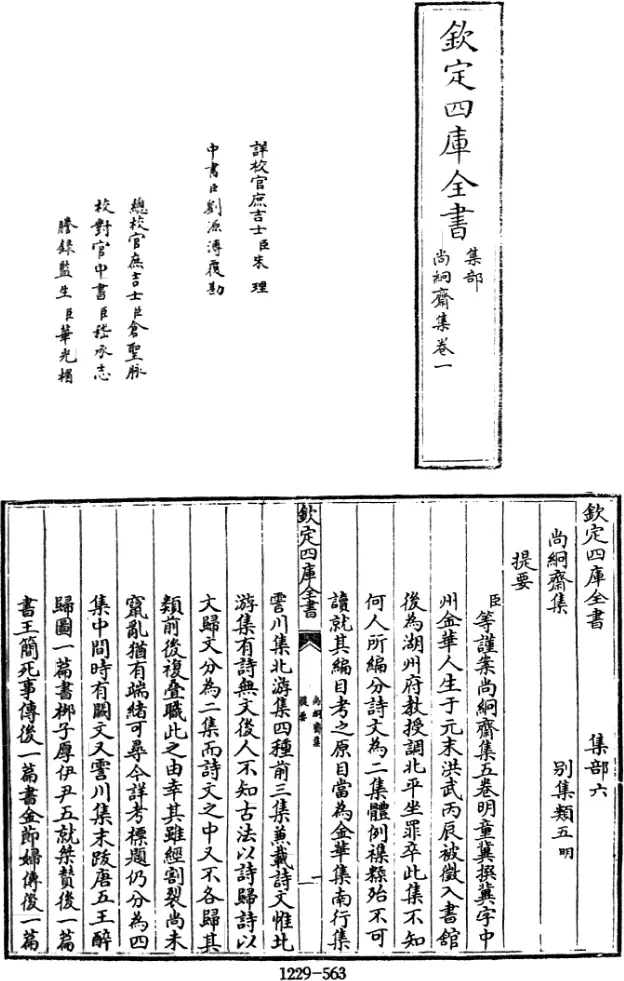 欽定四庫全書
集部
尚絅齋集卷一
詳校官庶吉士臣朱理
中書臣劉源溥覆勘
總校官庶吉士臣倉聖脉
校對官中書臣嵇承志
謄錄監生臣華光楣
欽定四庫全書
集部六
尚絅齋集
別集類五明
提要
臣等謹案尚絅齋集五卷明童冀撰冀字中
州金華人生于元末洪武丙辰被徵入書館
後為湖州府教授調北平坐罪卒此集不知
何人所編分詩文為二集體例襍糅殆不可
讀就其編目考之原目當為金華集南行集
欽定四庫全書
尚絅齋集
提要
一
霅川集北游集四種前三集兼載詩文惟北
游集有詩無文後人不知古法以詩歸詩以
文歸文分為二集而詩文之中又不各歸其
類前後複疊職此之由幸其雖經割裂尚未
竄亂猶有端緒可尋今詳考標題仍分為四
集中間時有闕文又霅川集末跋唐五王醉
歸圖一篇書栁子厚伊尹五就桀贊後一篇
書王簡死事傳後一篇書金節婦傳後一篇
1229-563